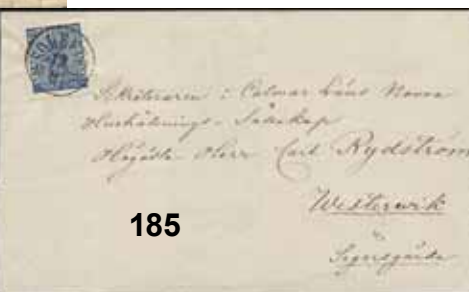 Sekreteraren i Calmar Läns Norra
Hushållnings-Sällskap
Högädle Herr Carl Rydström
Westerwik
185